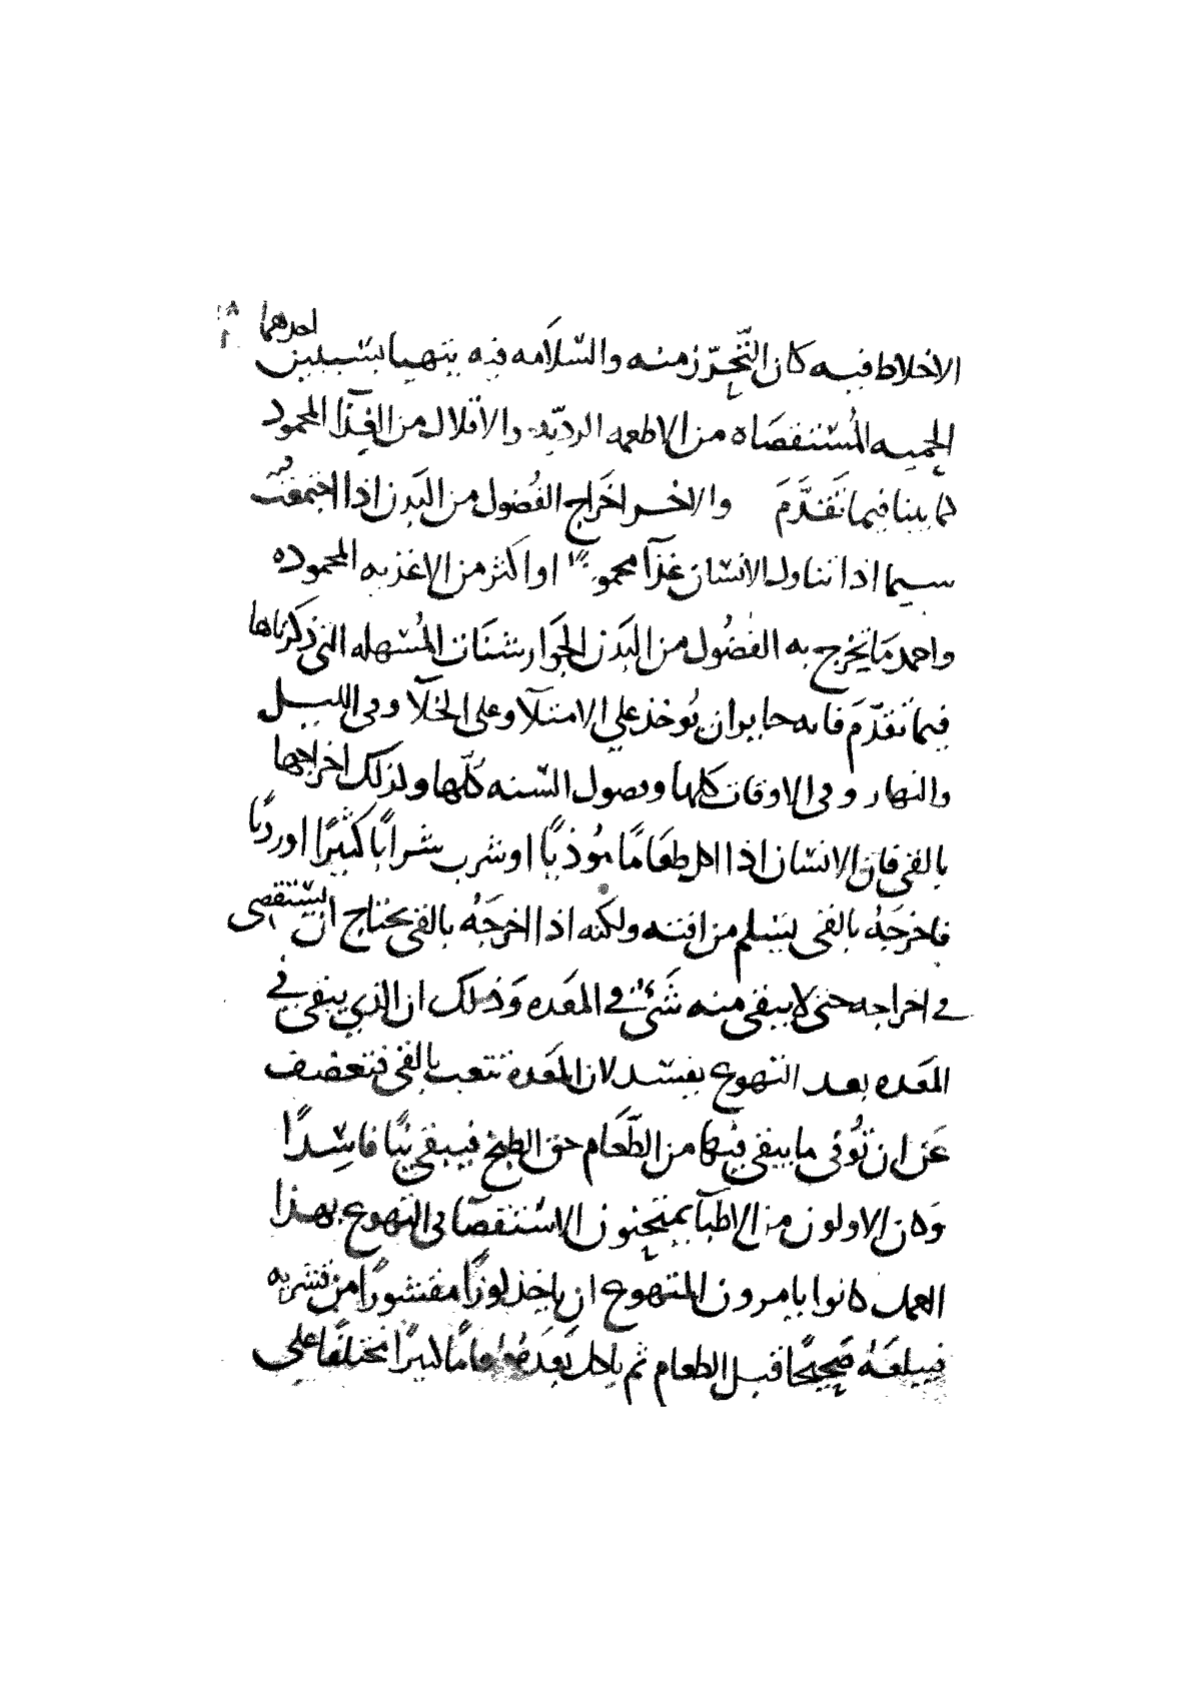 الاخلاط فيه كان التّحرّز منه والسّلامه فيه يتهيا بسبيلين احدهما
الحميه المُستقصَاه من الاطعمه الرديّه والاقلال من الغذآ المحمود
كما بينا فيما تَقدَّمَ والاخر اخَراج الفُضول من البَدن اذا اجتمعَت
سيما اذا تناول الانسَان غذآ محمودًا او اكثر من الاغذيه المحموده
واحمد مَا يخرج به الفضُول من البَدن الجوَارشنَات المُسهله التى ذكرناها
فيما تقدّمَ فانه جايز ان يُوخذ على الامتلآ وعلى الخلآ وفى الليل
والنهار وفى الاوقات كلها وفصول السّنه كُلّها ولذلك اخراجها
بالقى فان الانسان اذا اكل طعَامًا موُذيًا او شرب شرابًا كثيرًا او رديًا
فاخرجَهُ بالقى يسَلم من افته ولكنه اذا اخرجَهُ بالقى يحتاج ان يستقصى
فى اخراجه حتى لا يبقى منه شَىءٌ فى المعَده وَذلك ان الذي يبقى في
المعَده بعد التهوع يفسد لان المعَده تتعب بالقى فتضعف
عَن ان تُوفى ما يبقى فيها من الطّعَام حق الطبخ فيبقى نيًا فاسِدًا
وَكان الاولون من الاطبآ يمتحنون الاستقصآ فى التهوع بهذا
العمل كانوا يامرون المتهوع ان ياخذ لوزًا مقشورًا من قشريه
فيبلعَهُ صَحيحًا قبل الطعام ثم ياكل بَعدَهُ طعامًا كثيرًا مختلفًا على